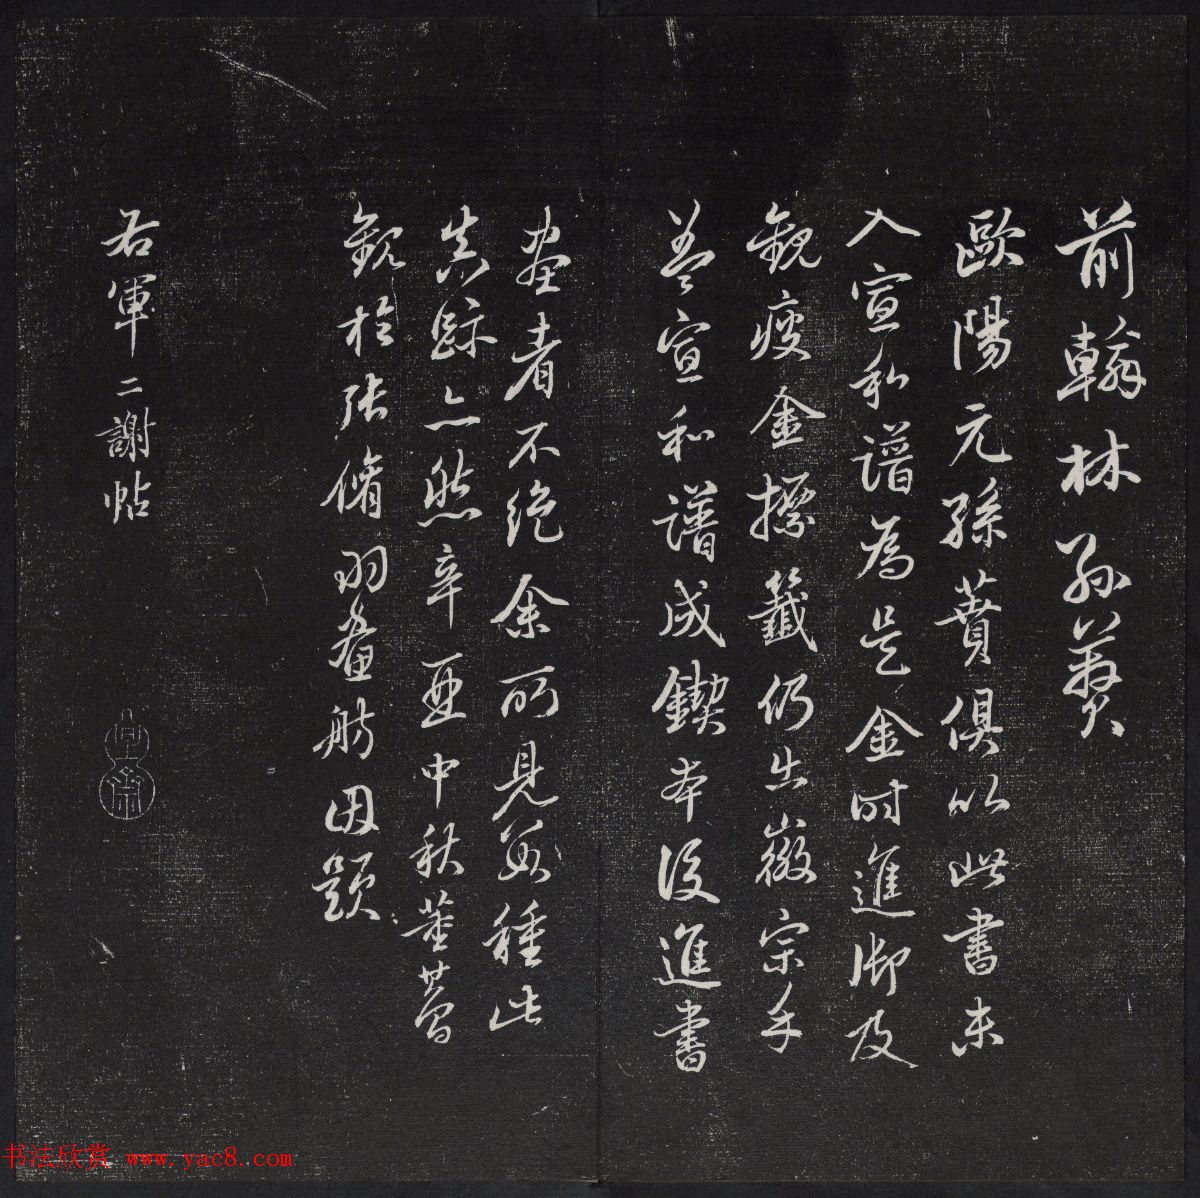 前翰林孫蕡
歐陽元孫蕡俱以此書未
入宣和譜為是金時進御及
觀瘦金標籤仍出徽宗手
葢宣和譜成鍥本後進書
畫者不絕余所見數種此
真跡亦然辛酉中秋董其昌
觀於張脩羽畫舫因題
右軍二謝帖
书法欣赏 www.yac8.com